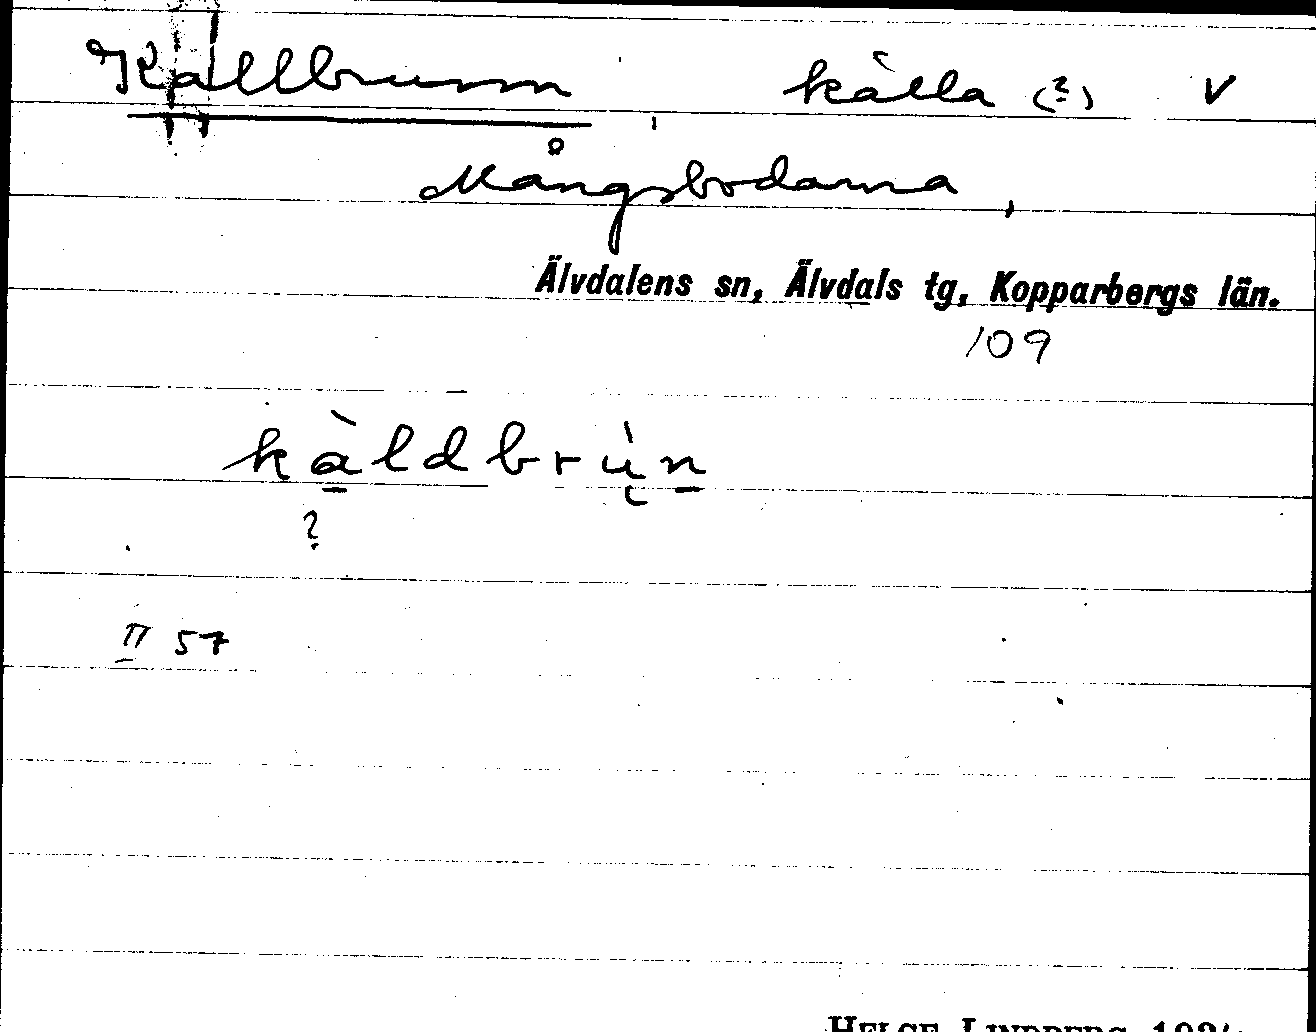 Kallbrunn, källa (?) V
Mångsbodarna,
Älvdalens sn, Älvdals tg, Kopparbergs län.
109
kàldbrùn
?
II 57
HELGE LINDBERG 1934